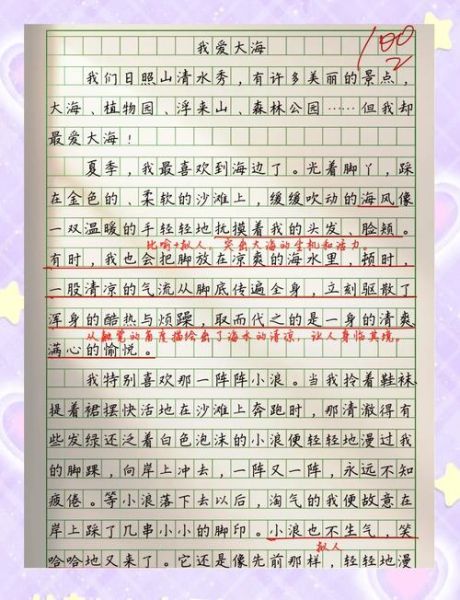 我爱大海
100
2
我们日照山清水秀，有许多美丽的景点，
大海、植物园、浮来山、森林公园……但我却
最爱大海！
夏季，我最喜欢到海边了。光着脚丫，踩
在金色的、柔软的沙滩上，缓缓吹动的海风像
一双温暖的手轻轻地抚摸着我的头发、脸颊。
比喻+拟人。突出大海的生机和活力。
有时，我也会把脚放在凉爽的海水里，顿时，
一股清凉的气流从脚底传遍全身，立刻驱散了
浑身的酷热与烦躁，取而代之的是一身的清爽
从触觉的角度描绘出了海水的清凉，让人身临其境。
满心的愉悦。
我特别喜欢那一阵阵小浪。当我拎着鞋袜，
提着裙摆快活地在沙滩上奔跑时，那清澈得有
些发绿还泛着白色泡沫的小浪便轻轻地漫过我
的脚踝，向岸上冲去，一阵又一阵，永远不知
疲倦。等小浪落下去以后，淘气的我便故意在
岸上踩了几串小小的脚印。小浪也不生气，笑
拟人
哈哈地又来了。它还是像先前那样，轻轻地漫